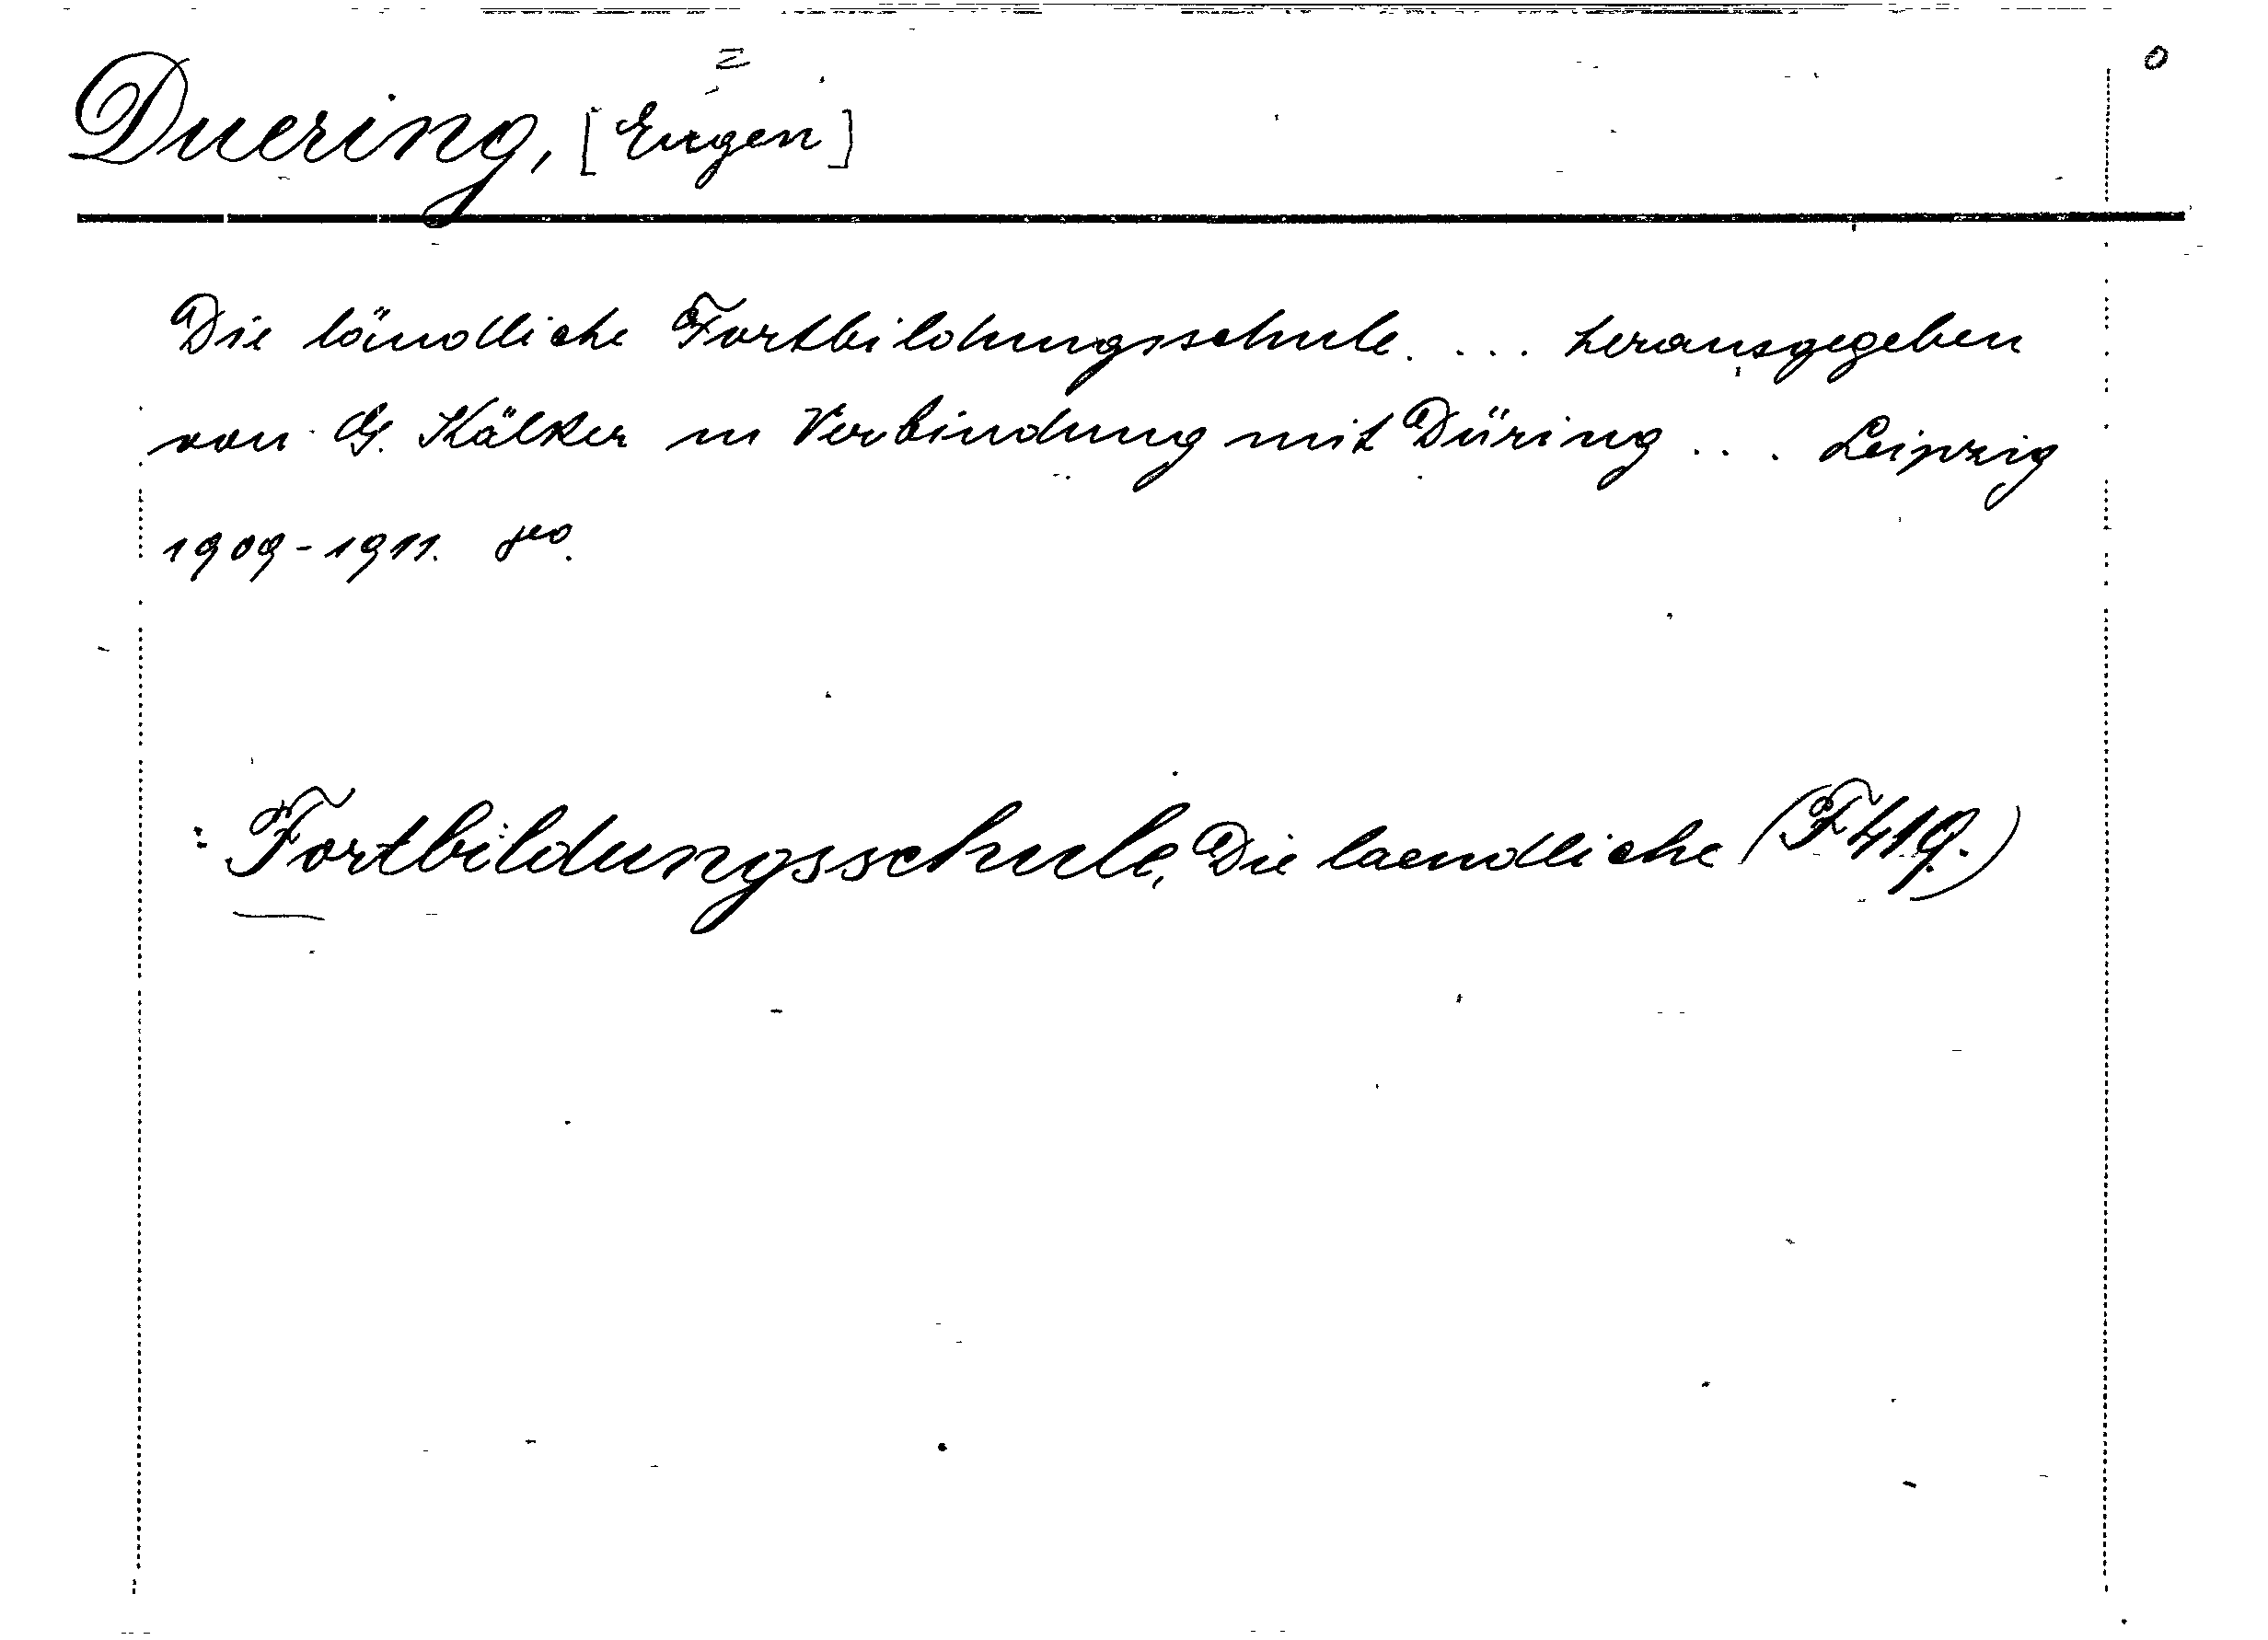 Duering, [Eugen]
Die ländliche Fortbildungsschule. ... herausgegeben
von G. Kälker in Verbindung mit Düring ... Leipzig
1909-1911. 8vo.
: Fortbildungsschule, Die laendliche (F 419.)